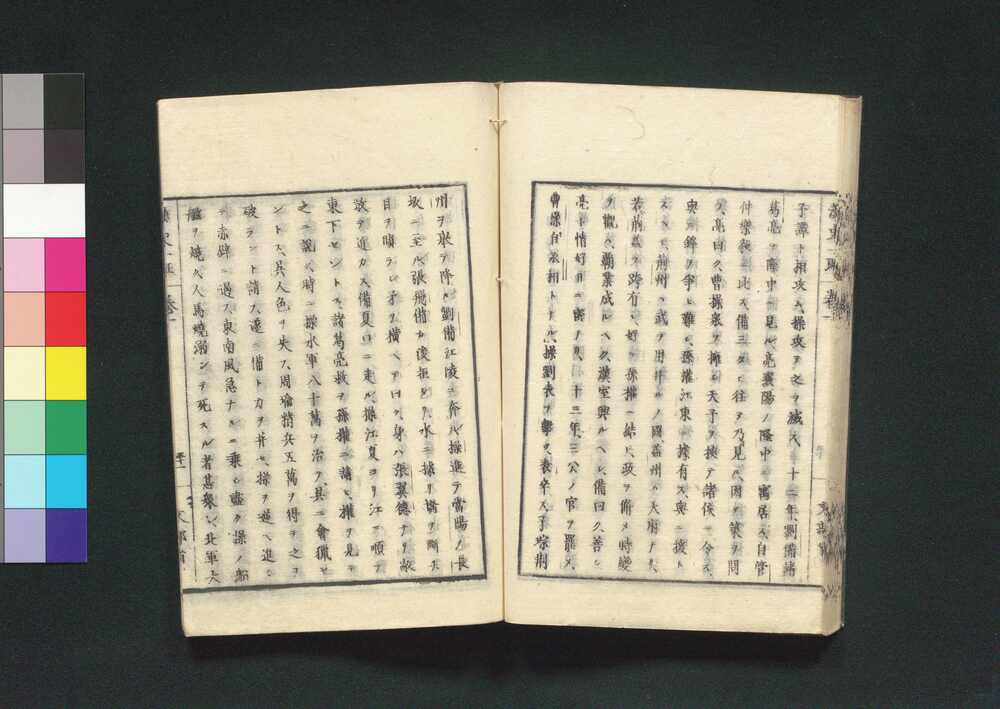 子譚ト相攻ム操攻ヲ之ヲ滅ス十二年劉備諸
葛亮ヲ隆中ニ見ル亮襄陽ノ隆中ニ寓居ス自管
仲樂毅ニ比ス備三タヒ往ヲ乃見ル因テ策ヲ問
フ亮曰ク曹操衆ヲ擁シ天子ヲ挾テ諸侯ニ令ス
與ニ鋒ヲ爭ヒ難シ孫權江東ニ據有ス與ニ援ト
スヘシ荊州ハ武ヲ用ユルノ國益州ハ天府ナリ
若荊益ヲ跨有シ好ヲ孫權ニ結ヒ政ヲ脩メ時變
ヲ觀ハ覇業成ルヘク漢室興ルヘシ備曰ク善シ
亮ト情好日ニ密ナリ十三年三公ノ官ヲ罷メ
曹操自丞相トナル操劉表ヲ擊ツ表卒ス子琮荊
州ヲ以テ降ル劉備江陵ニ奔ル操進テ當陽ノ長
坂ニ至ル張飛備カ後拒トリ水ニ據リ橋ヲ斷ス
目ヲ瞋ラシ矛ヲ横ヘテ曰ク身ハ張翼德ナリ敢
テ進ス備夏口ニ走ル操江夏ヨリ江ニ順テ
東下セントス諸葛亮救ヲ孫權ニ請ヒ權ヲ見テ
之ニ說ク時ニ操水軍八十萬ヲ治ヲ具ニ會獵セ
ントス其人色ヲ失ス周瑜精兵五萬ヲ得テ之ヲ
破ラント請ス遂ニ備ト力ヲ幷セ操ヲ逆ヘ進ン
テ赤壁ニ遇ス東南風急ナルニ乘シ盡ク操ノ船
艦ヲ燒ク人馬燒溺シテ死スル者甚衆シ北軍大
卷一
文部省